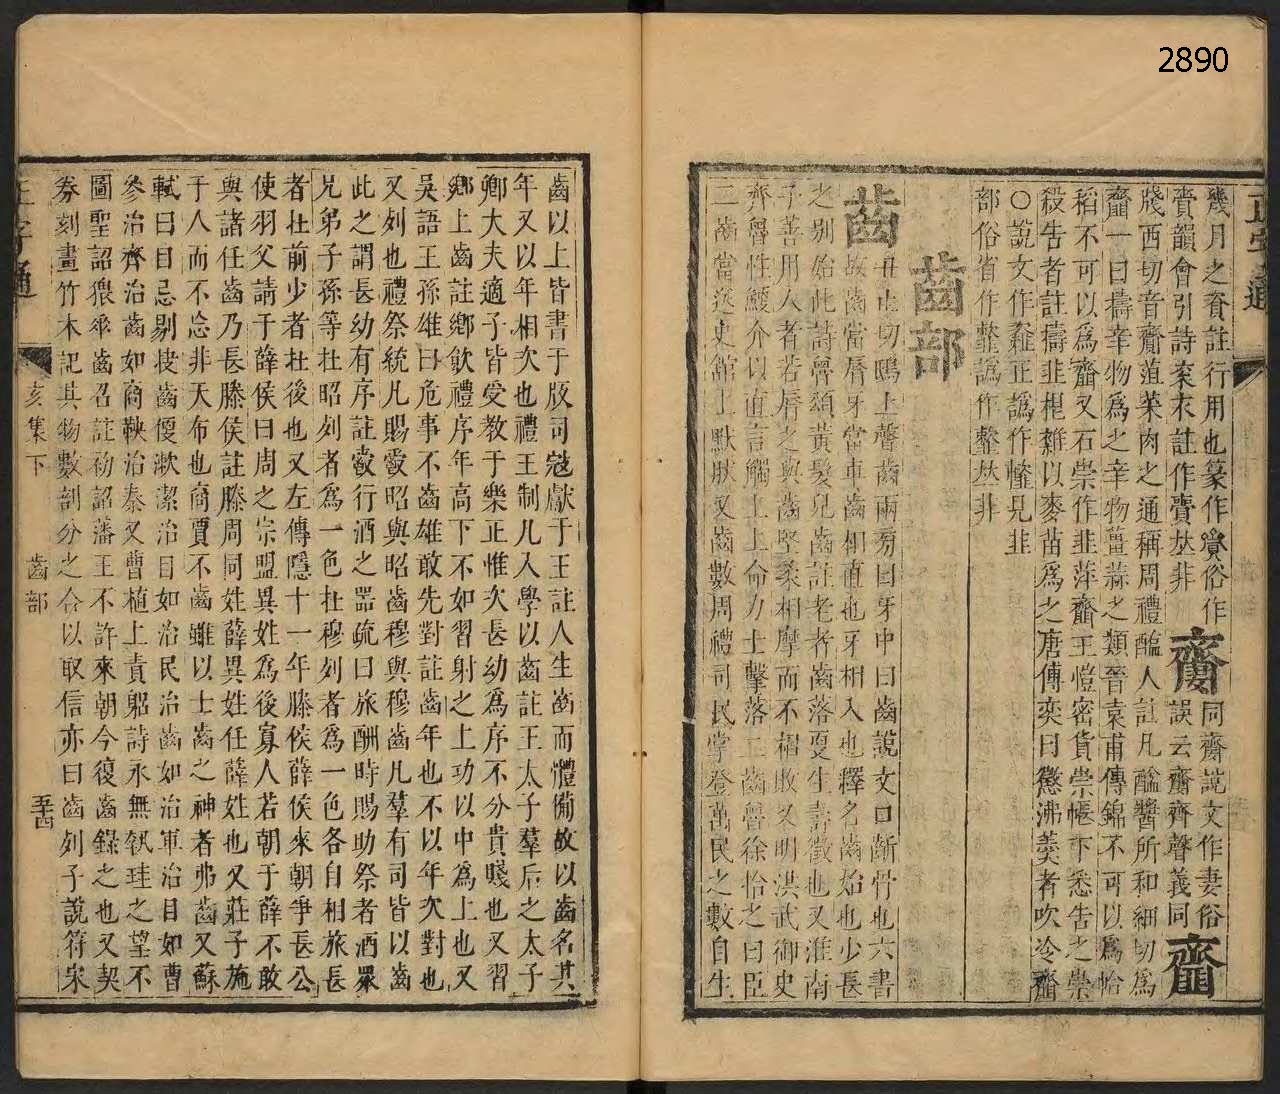 2890
正字通
幾月之資註行用也篆作賫俗作
賷韻會引詩楽衣註作賷𠀤非
齎同齋說文作妻俗
誤云齎齊聲義同
齏
牋西切音齎菹菜肉之通稱周禮醢人註凡醢醬所和細切爲
齏一曰擣辛物爲之辛物薑蒜之類晉袁甫傳錦不可以爲帢
稻不可以爲齏又石崇作韭萍齏王愷密貨崇帳下悉告之崇
殺告者註擣韭根雜以麥苗爲之唐傳奕曰懲沸羹者吹冷齏
○說文作𩐎正譌作韲見韭
部俗省作𩐎譌作韲𠀤非
齒部
齒
丑止切鴟上聲齒兩旁曰牙中曰齒說文口齗骨也六書
故齒當脣牙當車齒相値也牙相入也釋名齒始也少長
之别始此詩魯頌黃髮兒齒註老者齒落更生壽徵也又淮南
子善用人者若脣之與齒堅柔相摩而不相敗又明洪武御史
齊魯性鯁介以直言觸上上命力士擊落二齒魯徐拾之曰臣
二齒當送史館上默肰又齒數周禮司民掌登萬民之數自生
齒以上皆書于版司寇獻于王註人生齒而體備故以齒名其
年又以年相次也禮王制凡入學以齒註王太子羣后之太子
卿大夫適子皆受教于樂正惟次長幼爲序不分貴賤也又習
鄉上齒註鄉飮禮序年高下不如習射之上功以中爲上也又
吳語王孫雄曰危事不齒雄敢先對註齒年也不以年次對也
又列也禮祭統凡賜爵昭與昭齒穆與穆齒凡羣有司皆以齒
此之謂長幼有序註爵行酒之器疏曰旅酬時賜助祭者酒眾
兄弟子孫等杜昭列者爲一色杜穆列者爲一色各自相旅長
者杜前少者杜後也又左傳隱十一年滕侯薛侯來朝爭長公
使羽父請于薛侯曰周之宗盟異姓爲後寡人若朝于薛不敢
與諸任齒乃長滕侯註滕周同姓薛異姓任薛姓也又莊子施
于人而不忘非天布也商賈不齒雖以士齒之神者弗齒又蘇
軾曰目忌剔抜齒便漱潔治目如治民治齒如治軍治目如曹
參治齊治齒如商鞅治秦又曹植上責躬詩永無執珪之望不
圖聖詔猥𠂹齒召註初詔藩王不許來朝今復齒錄之也又契
券刻畫竹木記其物數剖分之合以取信亦曰齒列子說符宋
正字通
亥集下
齒部
五十四